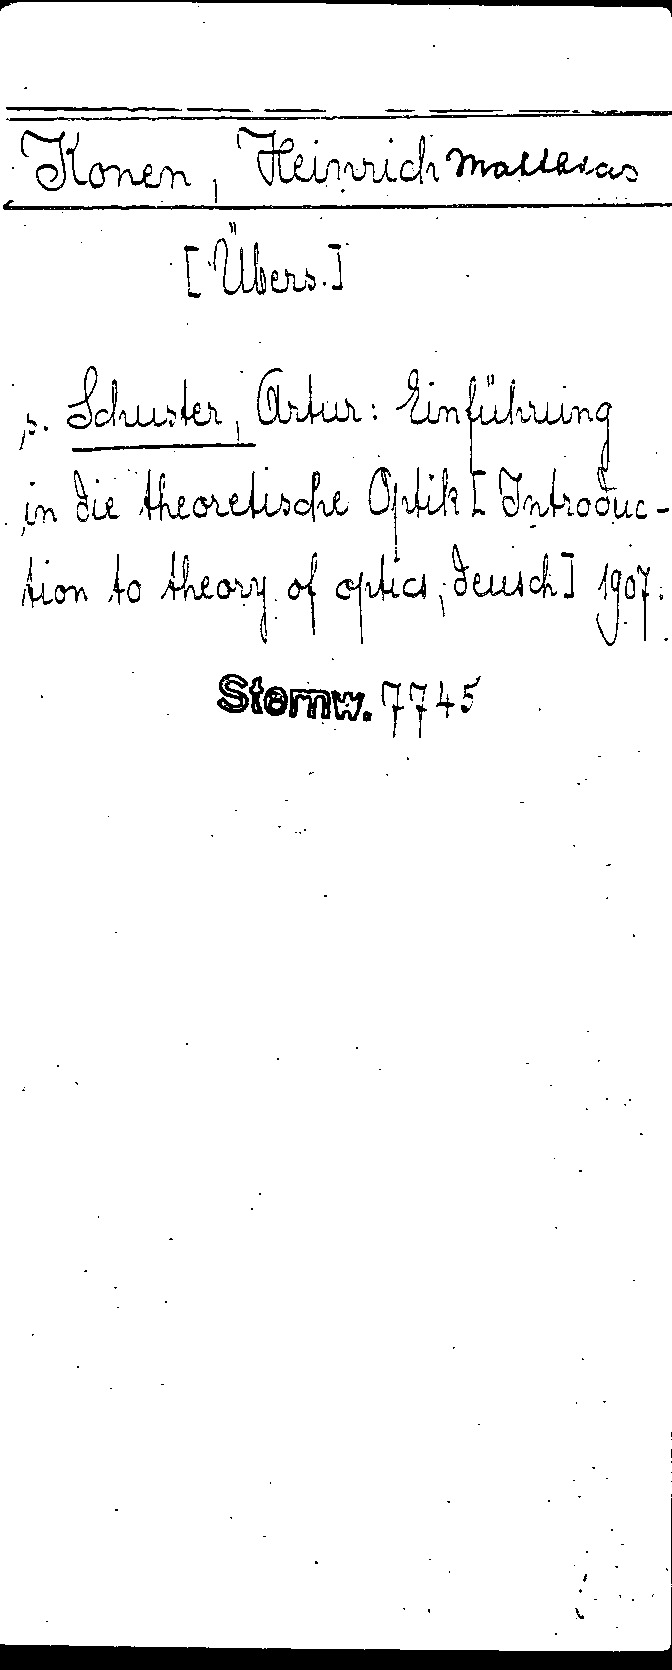 Konen, Heinrich Matthias
[Übers.]
s. Schuster, Artur: Einführung
in die theoretische Optik [Introduc-
tion to theory of optics, deusch] 1907.
Sternw. 7745